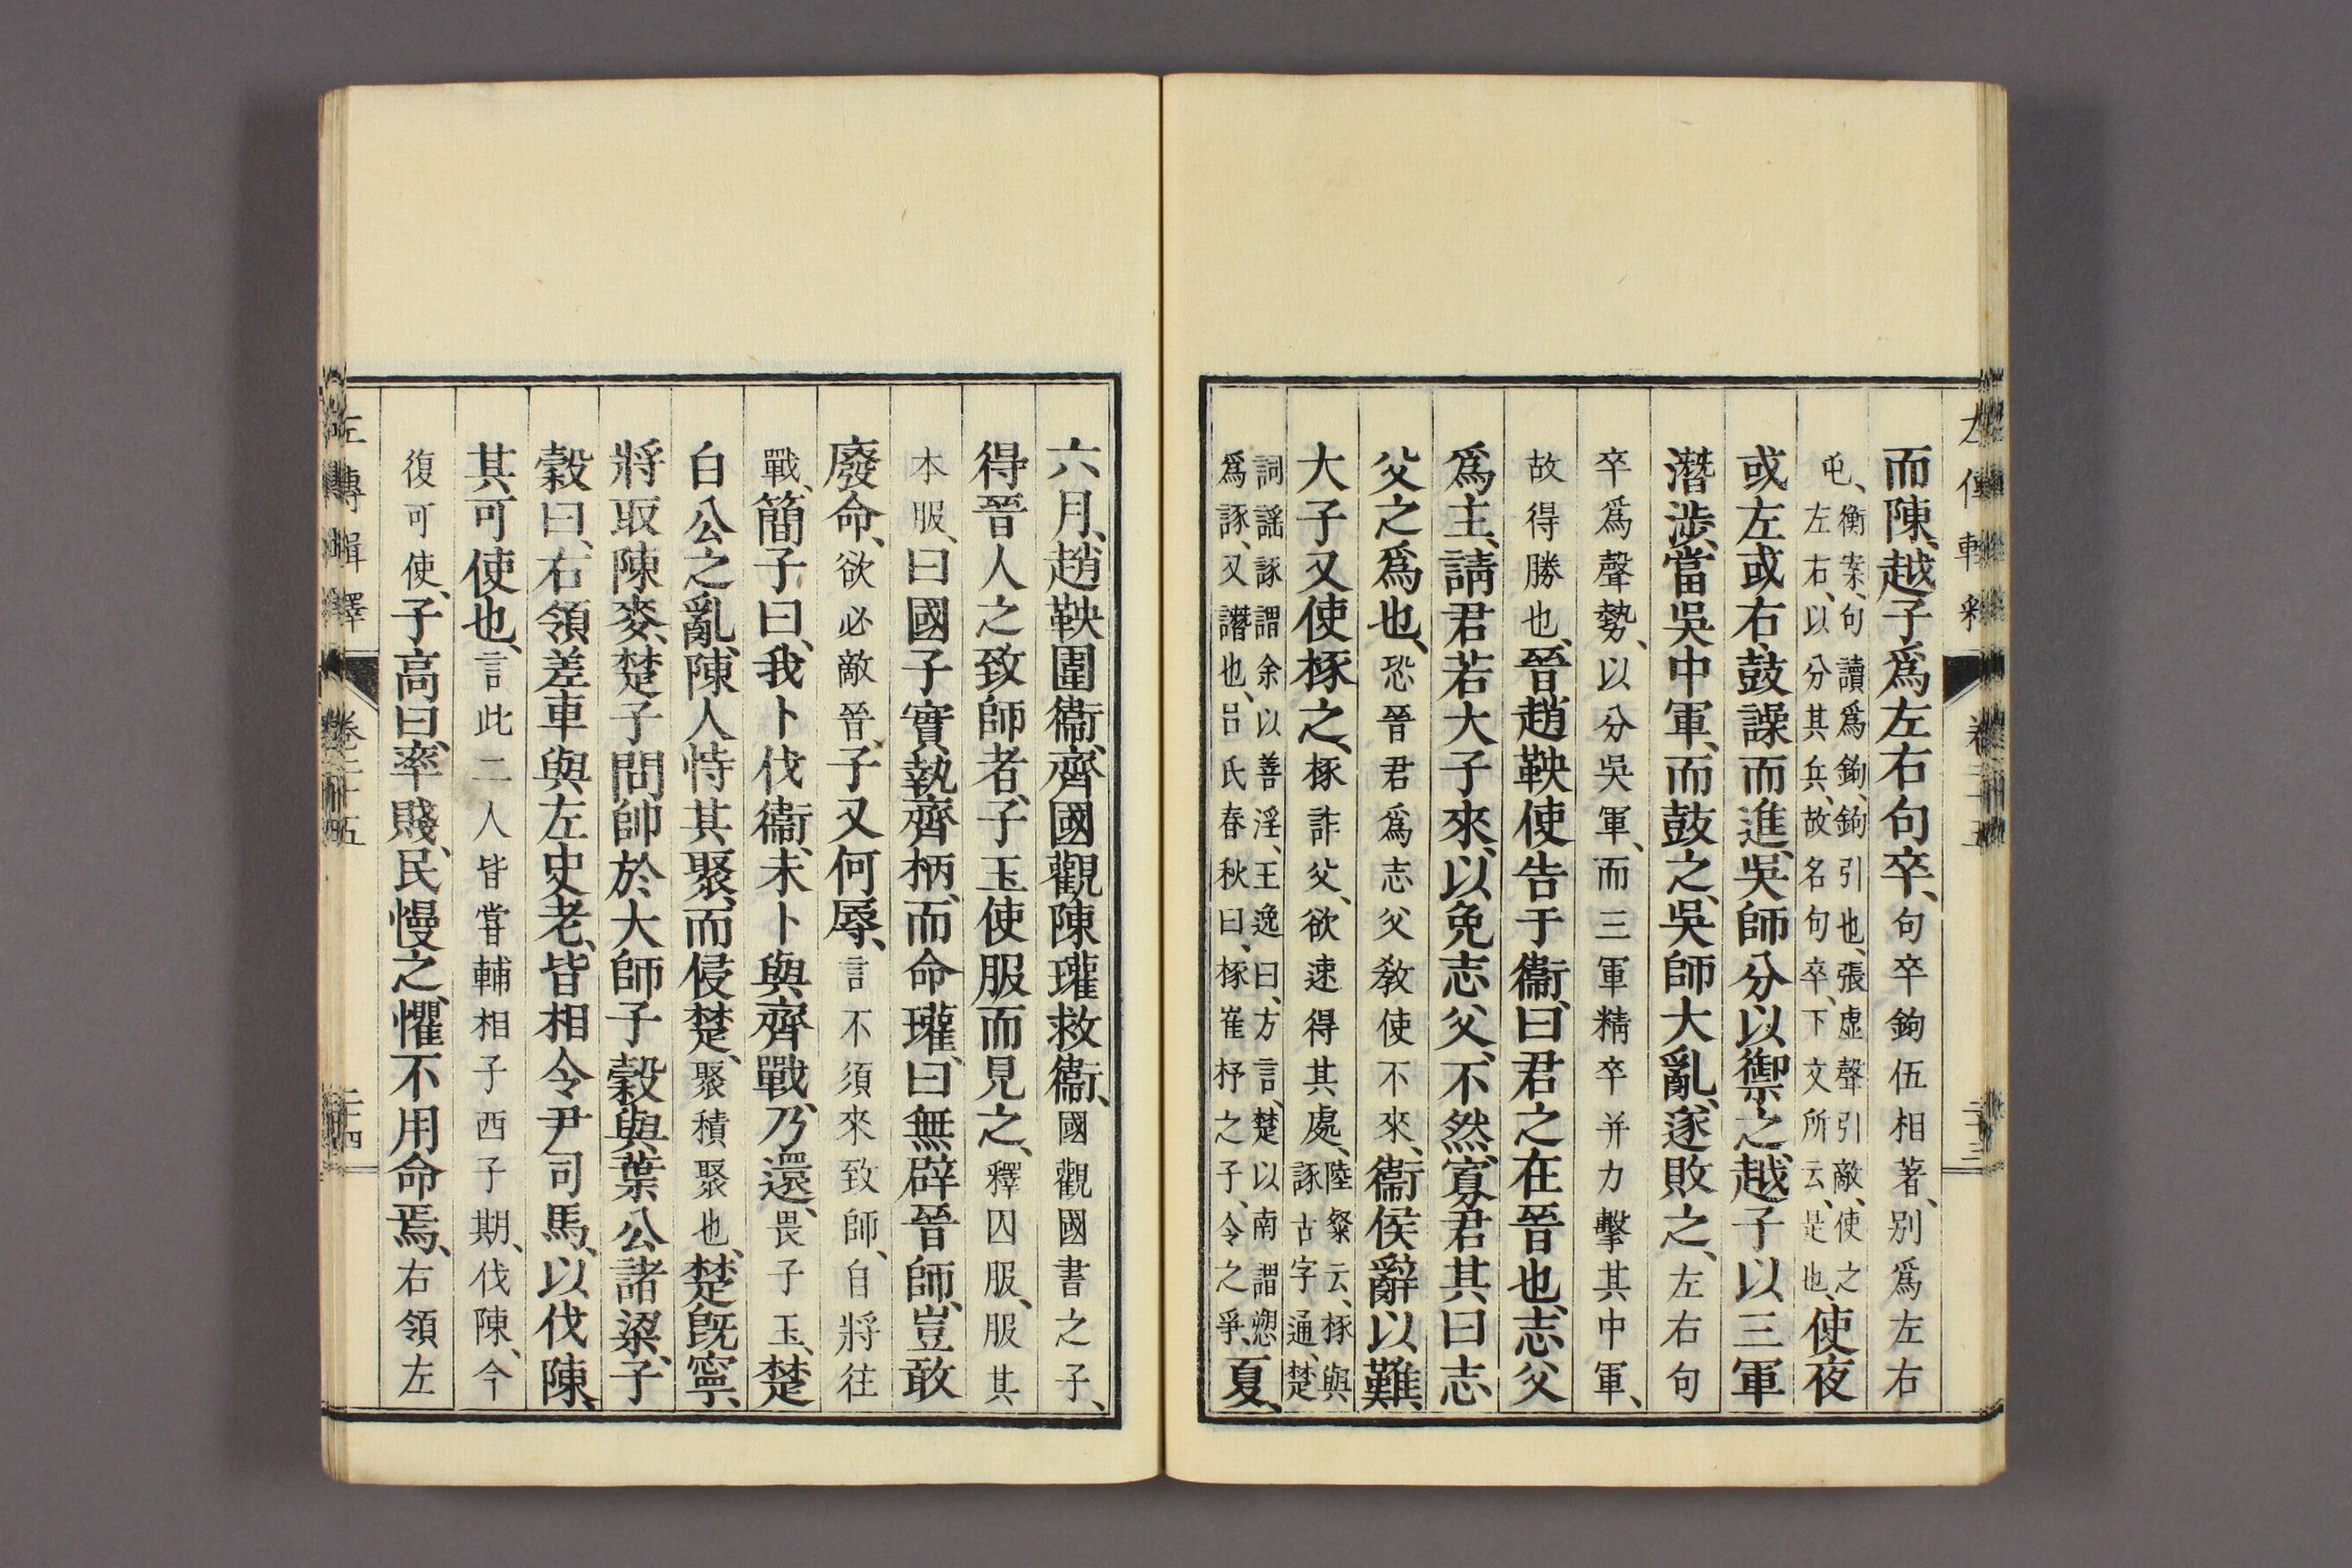 而陳、越子爲左右句卒、句卒鉤伍相著、別爲左右
屯、衡案、句讀爲鉤、鉤引也、張虛聲引敵、使之
左右、以分其兵、故名句卒、下文所云、是也、使夜
或左或右、鼓譟而進、吳師分以禦之、越子以三軍
潛涉、當吳中軍、而鼓之、吳師大亂、遂敗之、左右句
卒爲聲勢、以分吳軍、而三軍精卒并力擊其中軍、
故得勝也、晉趙鞅使告于衞、曰君之在晉也、志父
爲主、請君若大子來、以免志父、不然、寡君其曰志
父之爲也、恐晉君爲志父敎使不來、衞侯辭以難、
大子又使椓之、椓訴父、欲速得其處、陸粲云、椓與
諑古字通、楚
詞謠諑謂余以善淫、王逸曰、方言、楚以南謂愬
爲諑、又譖也、呂氏春秋曰、椓崔杼之子、令之爭、夏、
左傳輯釋 卷二十五 二十三
六月、趙鞅圍衞、齊國觀陳瓘救衞、國觀國書之子、
得晉人之致師者、子玉使服而見之、釋囚服、服其
本服、曰國子實執齊柄、而命瓘、曰無辟晉師、豈敢
廢命、欲必敵晉、子又何辱、言不須來致師、自將往
戰、簡子曰、我卜伐衞、未卜與齊戰、乃還、畏子玉、楚
白公之亂、陳人恃其聚、而侵楚、聚積聚也、楚旣寧、
將取陳麥、楚子問帥於大師子穀與葉公諸梁、子
穀曰、右領差車與左史老、皆相令尹司馬、以伐陳、
其可使也、言此二人皆嘗輔相子西子期、伐陳、今
復可使、子高曰、率賤、民慢之、懼不用命焉、右領左
左傳輯釋 卷二十五 二十四